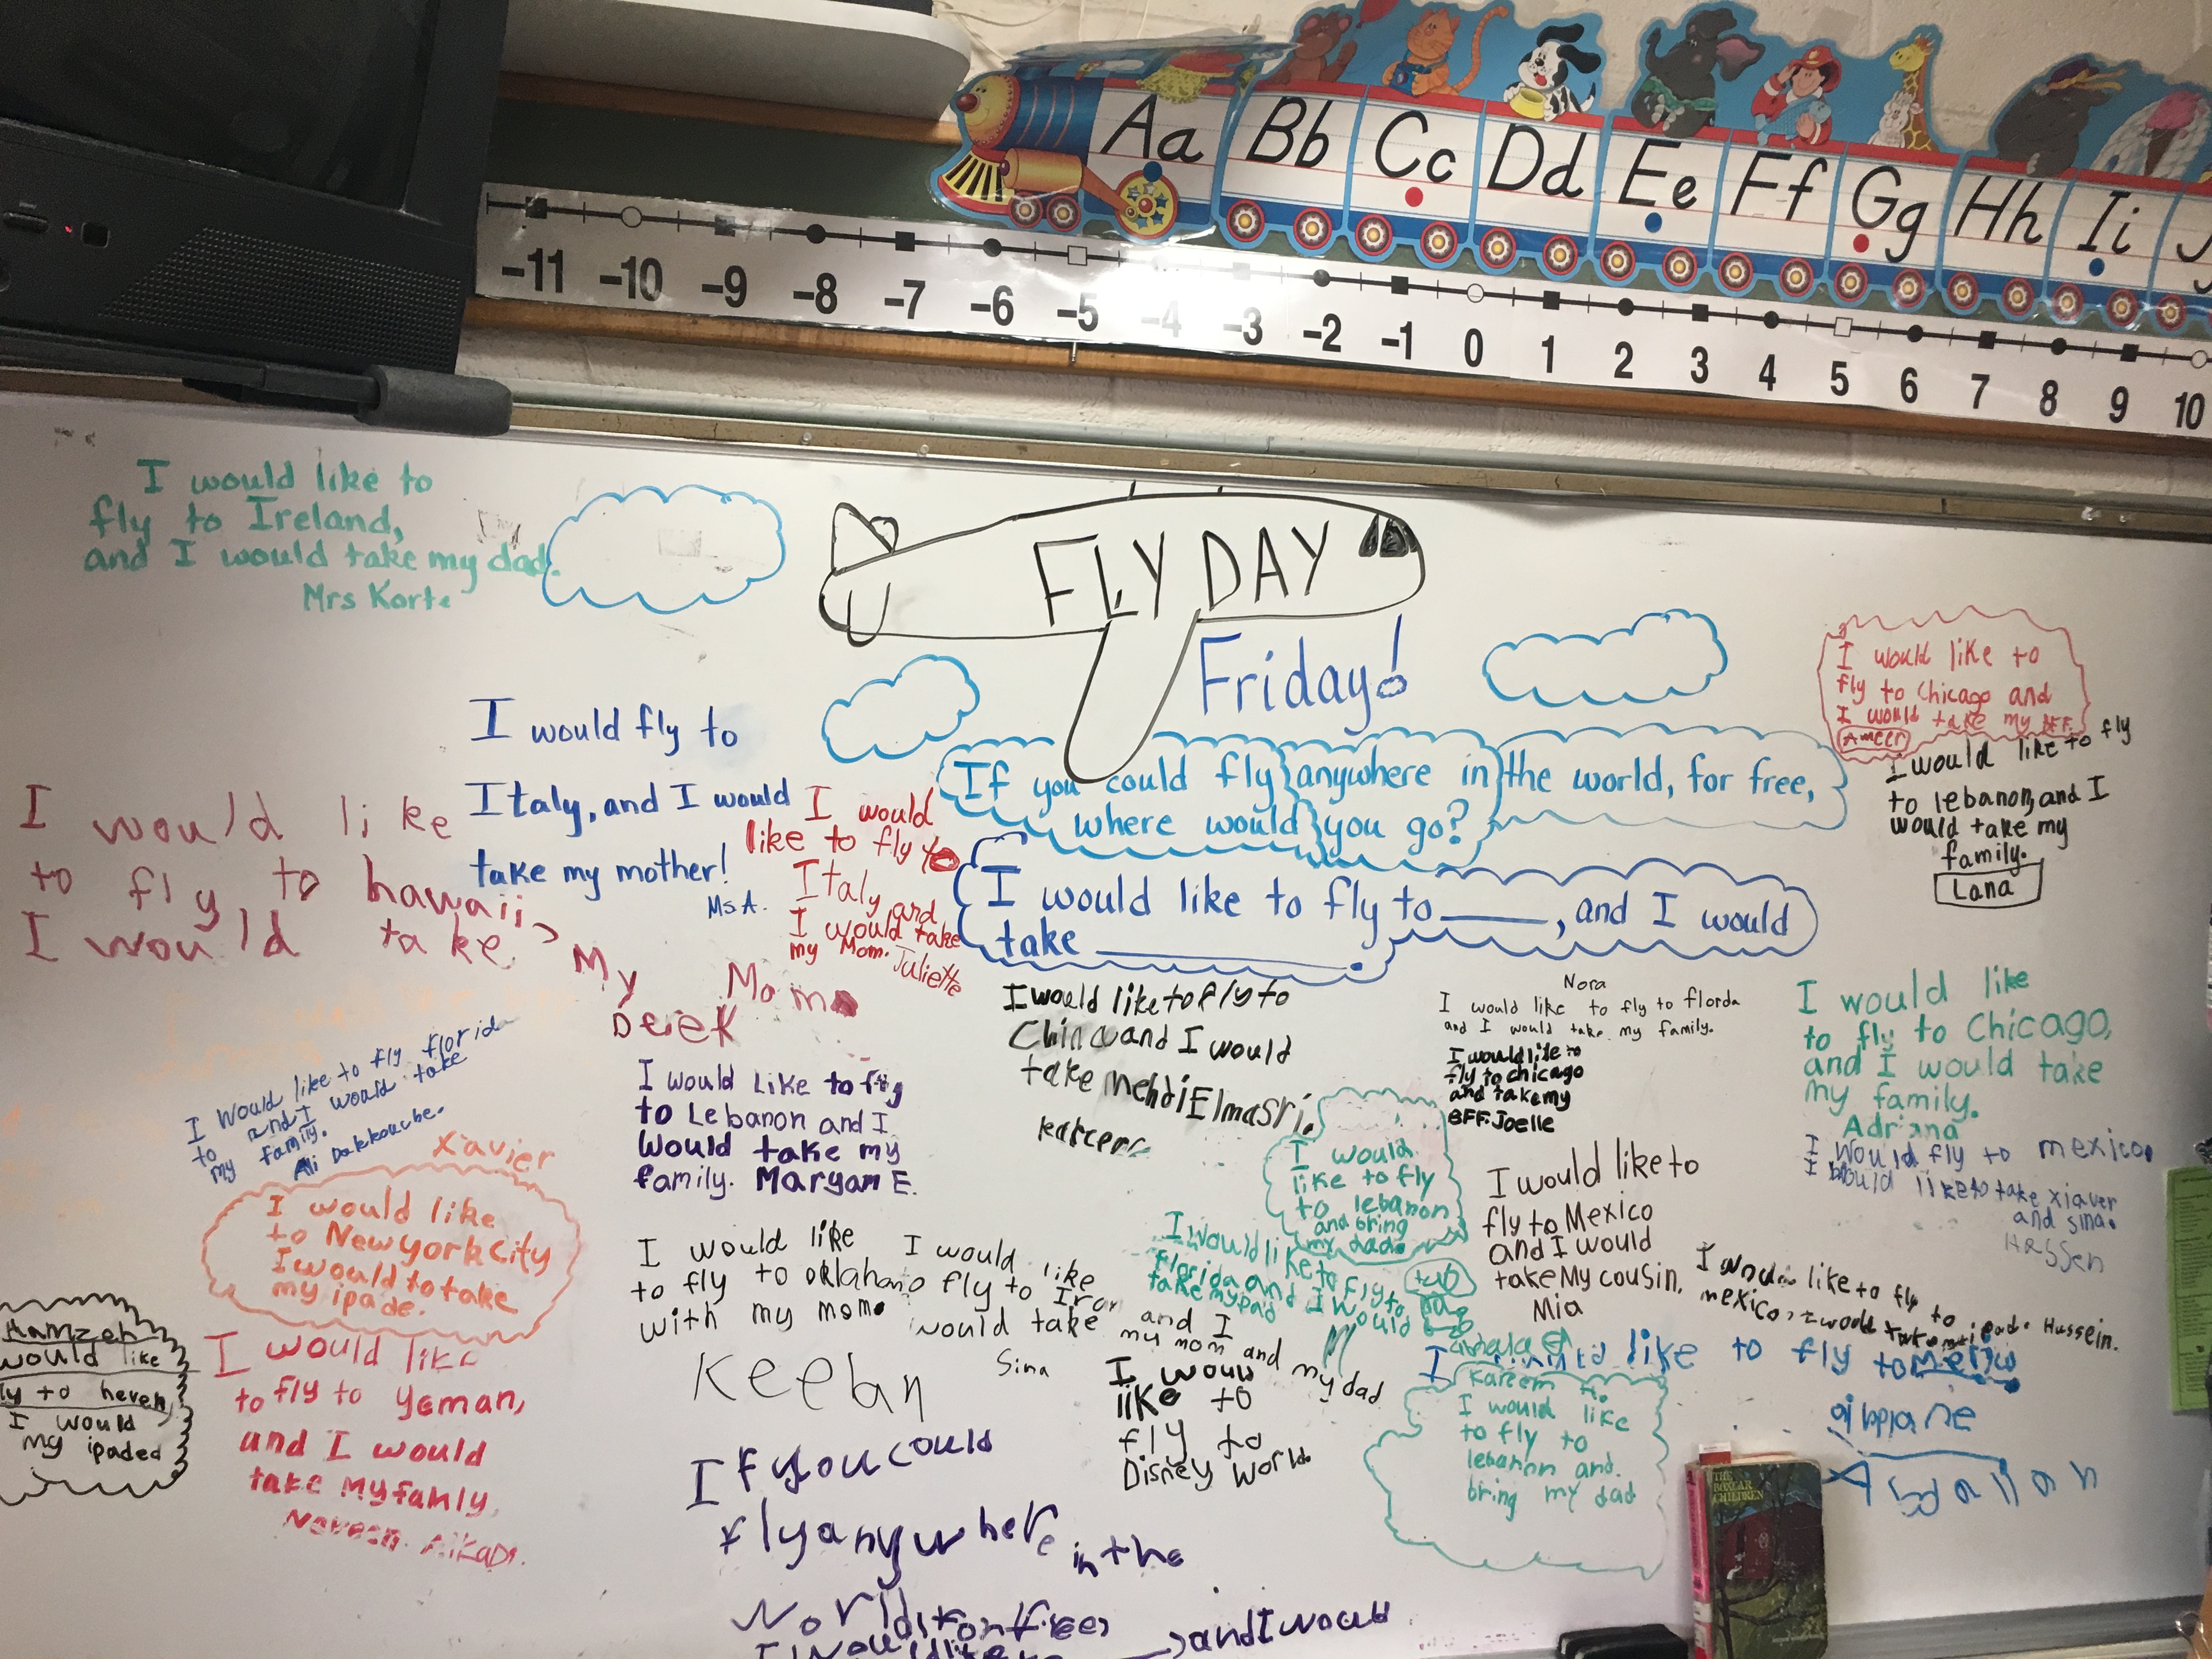 Aa Bb Cc Dd Ee Ff Gg Hh Ii
-11 -10 -9 -8 -7 -6 -5 -4 -3 -2 -1 0 1 2 3 4 5 6 7 8 9 10
I would like to
fly to Ireland,
and I would take my dad.
Mrs Korte
FLY DAY
Friday!
If you could fly anywhere in the world, for free,
where would you go?
I would like to fly to ____, and I would
take ____
I would fly to
Italy, and I would
take my mother!
Ms. A.
I would like
to fly to hawaii,
I would take
My Mom
Derek
I would
like to fly to
Italy and
I would take
my Mom. Juliette
I would like to
fly to Chicago and
I would take my BFF.
Ameer
I would like to fly
to lebanon, and I
would take my
family.
Lana
I would like to fly florida
to and I would take
my family.
Ali Dakroube.
Xavier
I would like
to New york City
I would to take
my ipade.
Hamzeh
would like
ly to heven
I would
my ipaded
I would like
to fly to yeman,
and I would
take My famly.
I would Like to fly
to Lebanon and I
would take my
family. Maryam E.
I would like to fly to
China and I would
take Mehdi Elmasri.
Nora
I would like to fly to florda
and I would take my family.
I would like to
fly to chicago
and take my
BFF. Joelle
I would like
to fly to Chicago,
and I would take
my family.
Adriana
I would fly to mexico.
I would like to take xiaver
and sina.
Hassen
I would
like to fly
to lebanon
and bring
my dad.
I would like to fly to
Florida and I would
take my
I would like to
fly to Mexico
and I would
take My cousin.
Mia
I would like to fly to
mexico, I would
Hussein.
I would like
to fly to oklahomo
with my mom.
Keelan
I would like
fly to Iran and I
would take my mom and my dad
Sina
I woud
like to
fly to
Disney World.
I would like to fly to
airplane
Kareem H.
I would like
to fly to
lebanon and
bring my dad
If you could
fly anywhere in the
world, for free,
I would like ____, and I would
THE
BOXCAR
CHILDREN